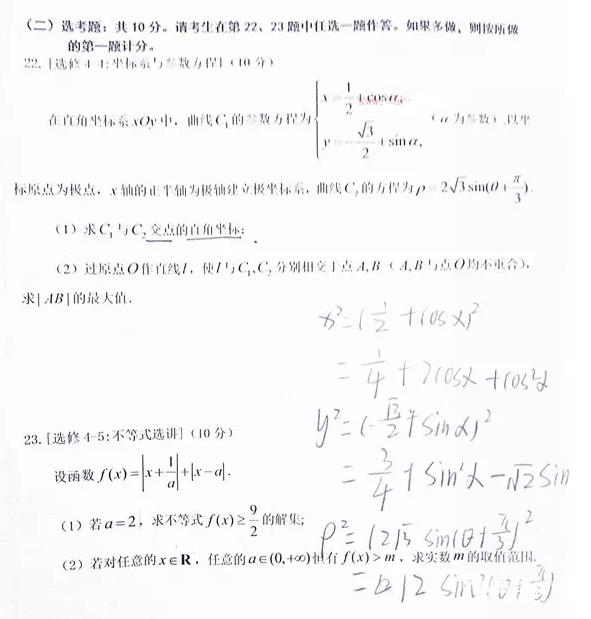 （二）选考题：共10分。请考生在第22、23题中任选一题作答。如果多做，则按所做
的第一题计分。
22.[选修4-4:坐标系与参数方程]（10分）
在直角坐标系xOy中，曲线C₁的参数方程为{x=1/2+cosα, y=-√3/2+sinα,（α为参数）.以坐
标原点为极点，x轴的正半轴为极轴建立极坐标系，曲线C₂的方程为ρ=2√3sin(θ+π/3).
（1）求C₁与C₂交点的直角坐标；
（2）过原点O作直线l，使l与C₁,C₂分别相交于点A,B（A,B与点O均不重合），
求|AB|的最大值.
x²=(1/2+cosα)²
=1/4+2cosα+cos²α
y²=(-√3/2+sinα)²
=3/4+sin²α-√2sin
23.[选修4-5:不等式选讲]（10分）
设函数f(x)=|x+1/a|+|x-a|.
（1）若a=2，求不等式f(x)≥9/2的解集;
ρ²=(2√3sin(θ+π/3))²
（2）若对任意的x∈R，任意的a∈(0,+∞)恒有f(x)>m，求实数m的取值范围.
=12sin²(θ+π/3)